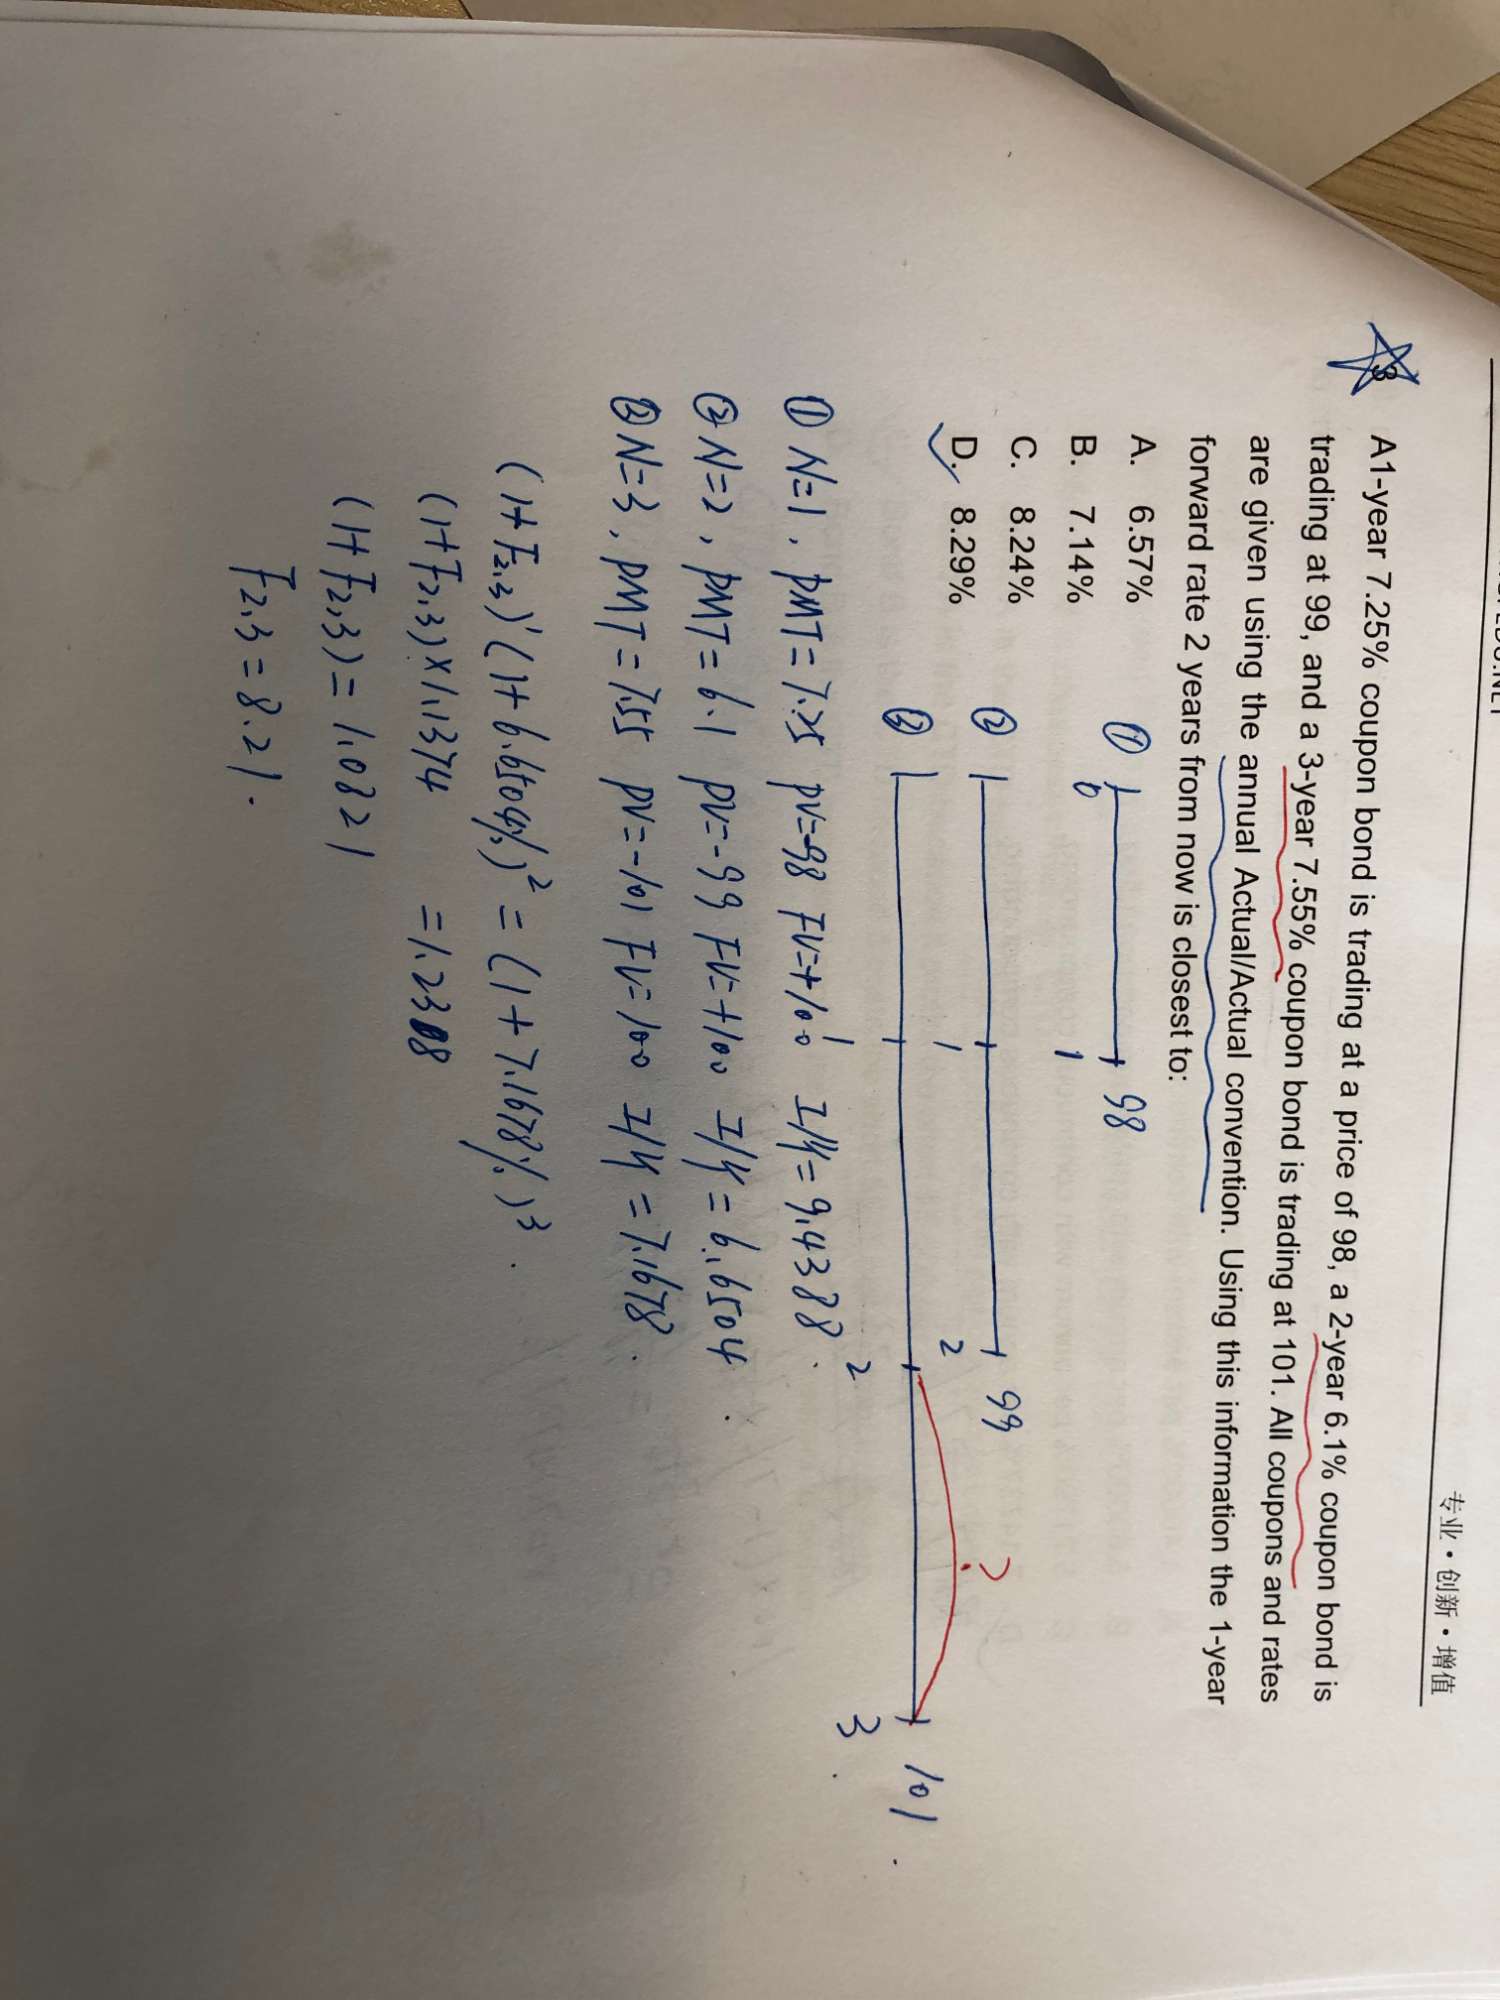 专业·创新·增值
3 A1-year 7.25% coupon bond is trading at a price of 98, a 2-year 6.1% coupon bond is
trading at 99, and a 3-year 7.55% coupon bond is trading at 101. All coupons and rates
are given using the annual Actual/Actual convention. Using this information the 1-year
forward rate 2 years from now is closest to:
A. 6.57%
B. 7.14%
C. 8.24%
D. 8.29%
① 98
0 1
② 99
1 2
?
③ 101
1 2 3
① N=1, PMT=7.25 PV=-98 FV=+100 I/Y=9.4388.
② N=2, PMT=6.1 PV=-99 FV=+100 I/Y=6.6504.
③ N=3, PMT=7.55 PV=-101 FV=100 I/Y=7.1678.
(1+F2,3)¹(1+6.6504%)² = (1+7.1678%)³.
(1+F2,3)×1.1374 = 1.2308
(1+F2,3) = 1.0821
F2,3 = 8.21.